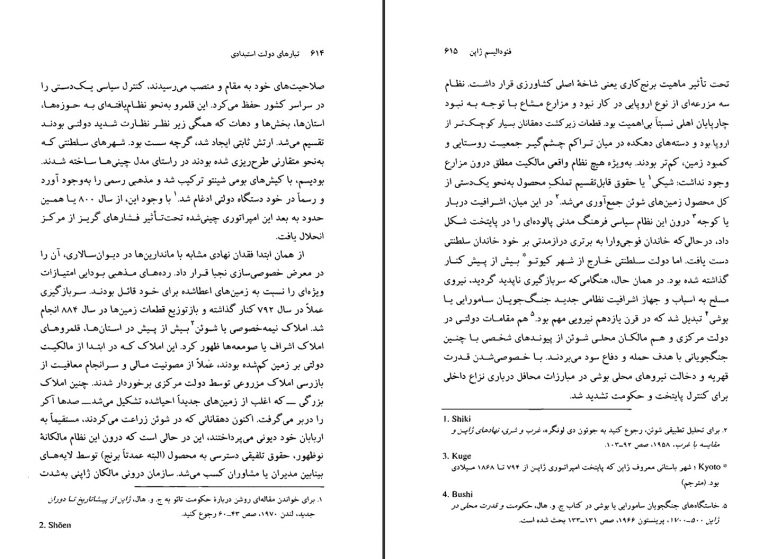 ۶۱۴ تبارهای دولت استبدادی
صلاحیت‌های خود به مقام و منصب می‌رسیدند، کنترل سیاسی یک‌دستی را
در سراسر کشور حفظ می‌کرد. این قلمرو به‌نحو نظام‌یافته‌ای به حوزه‌ها،
استان‌ها، بخش‌ها و دهات که همگی زیر نظر نظارت شدید دولتی بودند
تقسیم می‌شد. ارتش ثابتی ایجاد شد، گرچه سست بود. شهرهای سلطنتی که
به‌نحو متقارنی طرح‌ریزی شده بودند در راستای مدل چینی‌ها ساخته شدند.
بودیسم، با کیش‌های بومی شینتو ترکیب شد و مذهبی رسمی را به‌وجود آورد
و رسماً در خود دستگاه دولتی ادغام شد.۱ با وجود این، از سال ۸۰۰ یا همین
حدود به بعد این امپراتوری چینی‌شده تحت‌تأثیر فشارهای گریز از مرکز
انحلال یافت.
از همان ابتدا فقدان نهادی مشابه با ماندارین‌ها در دیوان‌سالاری، آن را
در معرض خصوصی‌سازی نجبا قرار داد. رده‌های مذهبی بودایی امتیازات
ویژه‌ای را نسبت به زمین‌های اعطاشده برای خود قائل بودند. سربازگیری
عملاً در سال ۷۹۲ کنار گذاشته و بازتوزیع قطعات زمین‌ها در سال ۸۸۴ انجام
شد. املاک نیمه‌خصوصی یا شوئن۲ بیش از پیش در استان‌ها، قلمروهای
املاک اشراف یا صومعه‌ها ظهور کرد. این املاک که در ابتدا از مالکیت
دولتی بر زمین کم‌شده بودند، عملاً از مصونیت مالی و سرانجام معافیت از
بازرسی املاک مزروعی توسط دولت مرکزی برخوردار شدند. چنین املاک
بزرگی ـــ‌که اغلب از زمین‌های جدیداً احیاشده تشکیل می‌شدـــ صدها آکر
را دربر می‌گرفت. اکنون دهقانانی که در شوئن زراعت می‌کردند، مستقیماً به
اربابان خود دیونی می‌پرداختند، این در حالی است که درون این نظام مالکانۀ
نوظهور، حقوق تلفیقی دسترسی به محصول (البته عمدتاً برنج) توسط لایه‌های
بینابین مدیران یا مشاوران کسب می‌شد. سازمان درونی مالکان ژاپنی به‌شدت
۱. برای خواندن مقاله‌ای روشن دربارۀ حکومت تائو به ج. و. هال، ژاپن از پیشاتاریخ تا دوران
جدید، لندن ۱۹۷۰، صص ۴۳-۶۰ رجوع کنید.
2. Shōen
فئودالیسم ژاپن ۶۱۵
تحت تأثیر ماهیت برنج‌کاری یعنی شاخۀ اصلی کشاورزی قرار داشت. نظام
سه مزرعه‌ای از نوع اروپایی در کار نبود و مزارع مشاع با توجه به نبود
چارپایان اهلی نسبتاً بی‌اهمیت بود. قطعات زیرکشت دهقانان بسیار کوچک‌تر از
اروپا بود و دسته‌های دهکده در میان تراکم چشم‌گیر جمعیت روستایی و
کمبود زمین، کم‌تر بودند. به‌ویژه هیچ نظام واقعی مالکیت مطلق درون مزارع
وجود نداشت: شیکی۱ یا حقوق قابل‌تقسیم تملکِ محصول به‌نحو یک‌دستی از
کل محصول زمین‌های شوئن جمع‌آوری می‌شد.۲ در این میان، اشرافیت دربار
یا کوجه۳ درون این نظام سیاسی فرهنگ مدنی پالوده‌ای را در پایتخت شکل
داد، درحالی‌که خاندان فوجی‌وارا به برتری درازمدتی بر خود خاندان سلطنتی
دست یافت. اما دولت سلطنتی خارج از شهر کیوتو* بیش از پیش کنار
گذاشته شده بود. در همان حال، هنگامی‌که سربازگیری ناپدید گردید، نیروی
مسلح به اسباب و جهاز اشرافیت نظامی جدید جنگ‌جویان سامورایی یا
بوشی۴ تبدیل شد که در قرن یازدهم نیرویی مهم بود.۵ هم مقامات دولتی در
دولت مرکزی و هم مالکان محلی شوئن از پیوندهای شخصی با چنین
جنگجویانی با هدف حمله و دفاع سود می‌بردند. با خصوصی‌شدن قدرت
قهریه و دخالت نیروهای محلی بوشی در مبارزات محافل درباری نزاع داخلی
برای کنترل پایتخت و حکومت تشدید شد.
1. Shiki
۲. برای تحلیل تطبیقی شوئن، رجوع کنید به جوئون دی لونگره، غرب و شرق، نهادهای ژاپن و
مقایسه با غرب، ۱۹۵۸، صص ۹۲-۱۰۳.
3. Kuge
* Kyoto؛ شهر باستانی معروف ژاپن که پایتخت امپراتوری ژاپن از ۷۹۴ تا ۱۸۶۸ میلادی
بود. (مترجم)
4. Bushi
۵. خاستگاه‌های جنگجویان سامورایی یا بوشی در کتاب ج. و. هال، حکومت و قدرت محلی در
ژاپن ۵۰۰-۱۷۰۰، پرینستون ۱۹۶۶، صص ۱۳۱-۱۳۳ بحث شده است.